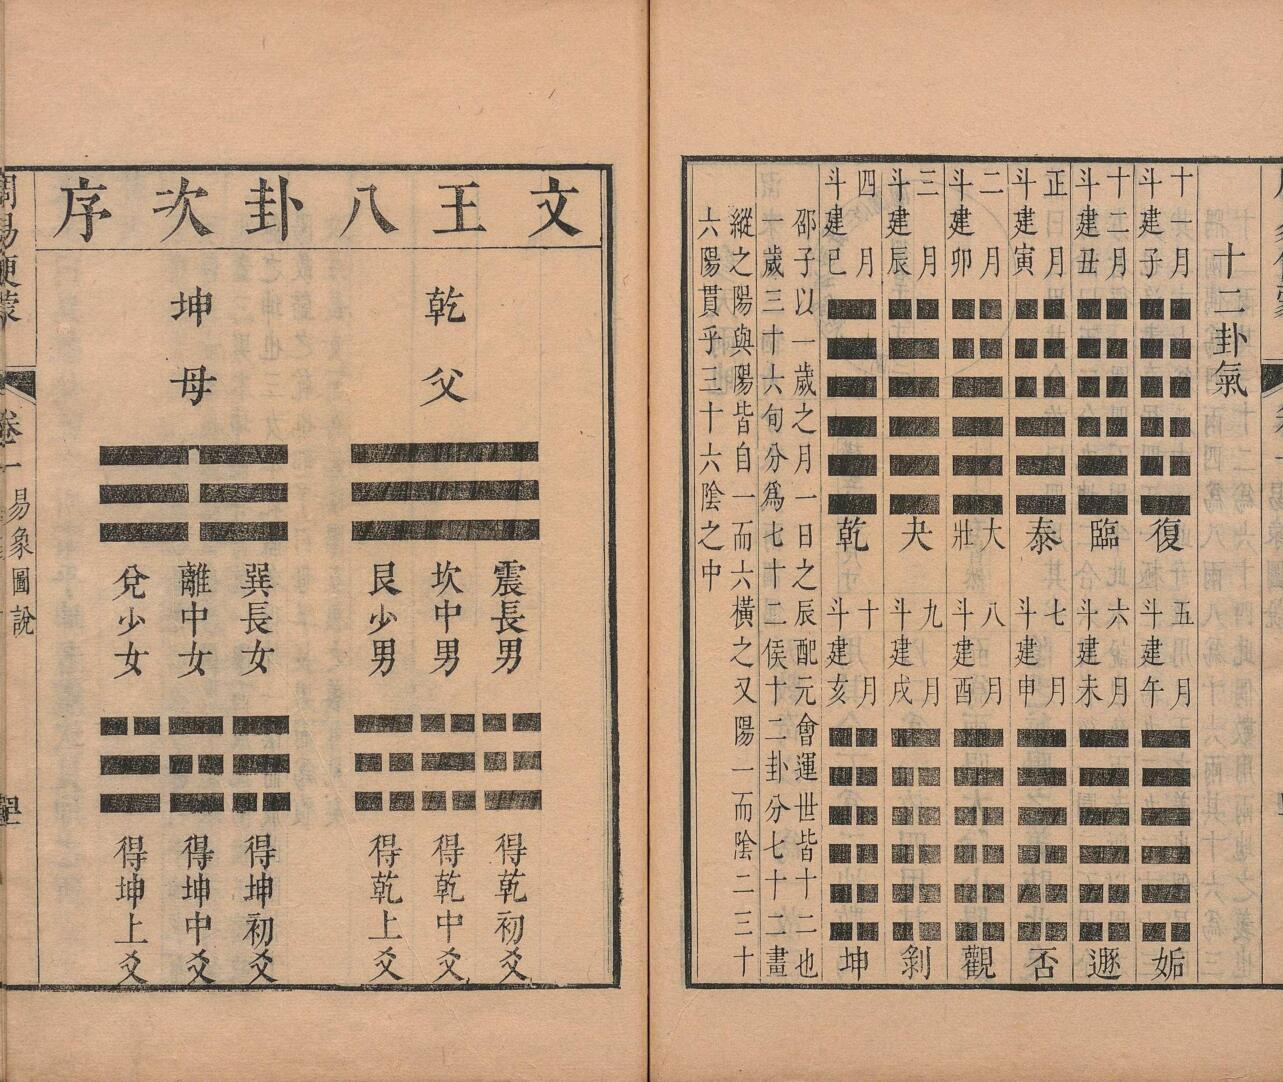 十二卦氣
十一月
斗建子
復
五月
斗建午
姤
十二月
斗建丑
臨
六月
斗建未
遯
正月
斗建寅
泰
七月
斗建申
否
二月
斗建卯
大壯
八月
斗建酉
觀
三月
斗建辰
夬
九月
斗建戌
剝
四月
斗建巳
乾
十月
斗建亥
坤
邵子以一歲之月一日之辰配元會運世皆十二也
歲三十六旬分爲七十二侯十二卦分七十二畫
縱之陽與陽皆自一而六橫之又陽一而陰二三十
六陽貫乎三十六陰之中
文王八卦次序
乾父
坤母
震長男
坎中男
艮少男
巽長女
離中女
兌少女
得乾初爻
得乾中爻
得乾上爻
得坤初爻
得坤中爻
得坤上爻
卷一
易象圖說